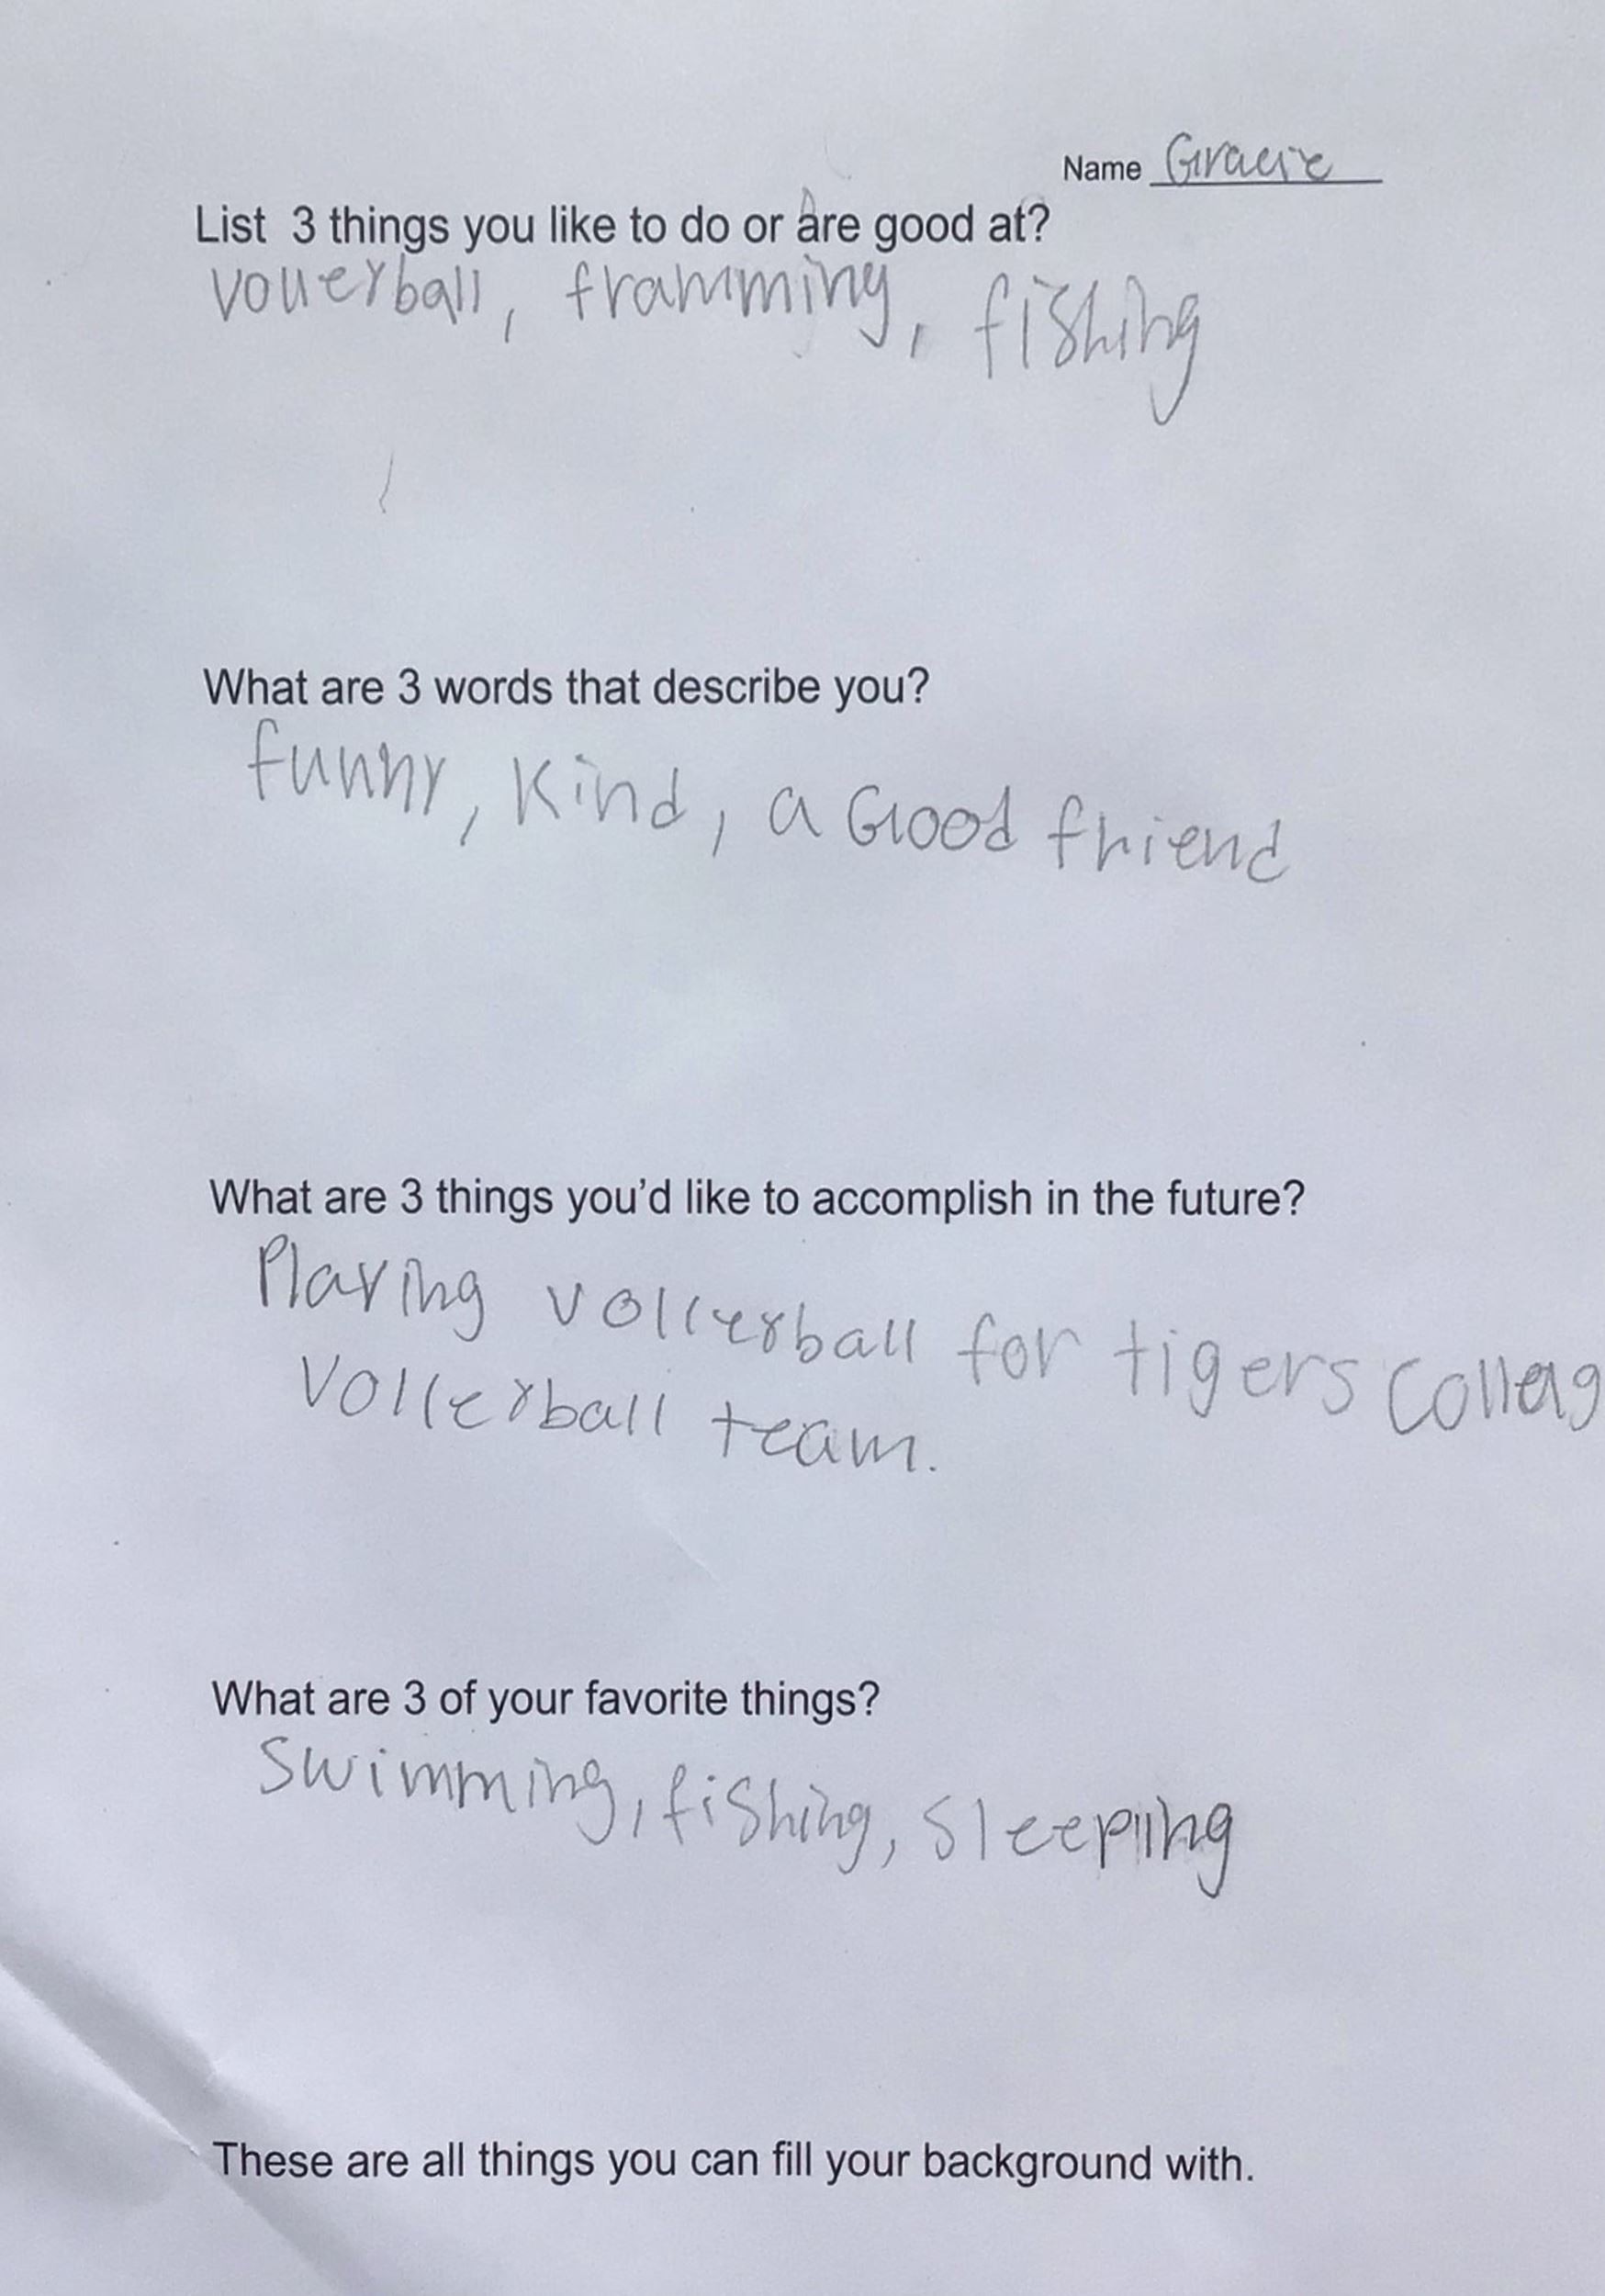 Name Gracie
List 3 things you like to do or are good at?
volleyball, framming, fishing
What are 3 words that describe you?
funny, Kind, a Good friend
What are 3 things you'd like to accomplish in the future?
Playing volleyball for tigers collag
Volleyball team.
What are 3 of your favorite things?
Swimming, fishing, sleeping
These are all things you can fill your background with.